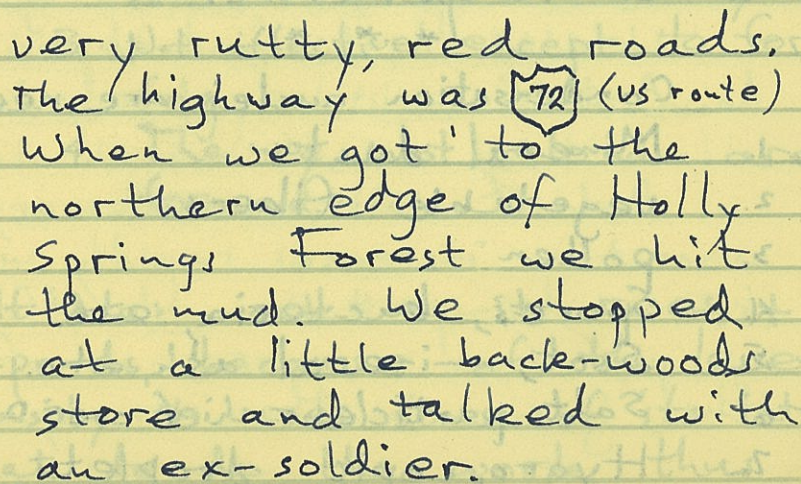 very rutty, red roads.
The highway was 72 (US route)
When we got to the
northern edge of Holly
Springs Forest we hit
the mud. We stopped
at a little back-woods
store and talked with
an ex-soldier.